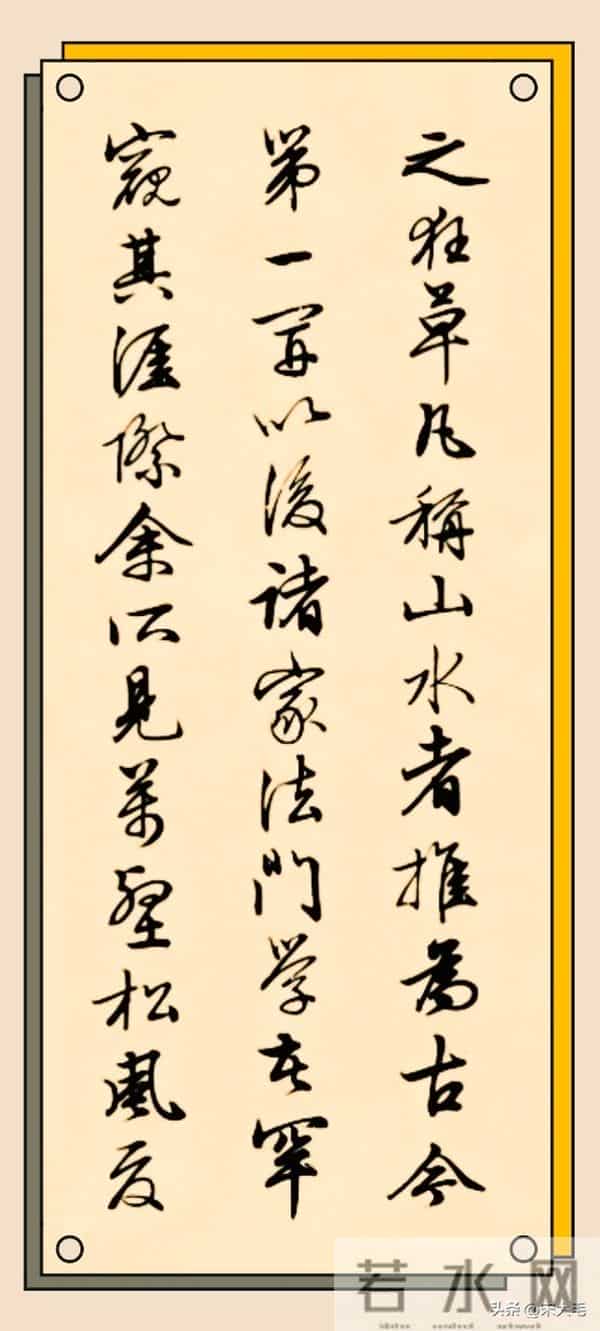 之狂草凡稱山水者推為古今
第一宗以後諸家法門學者罕
窺其涯際余所見萬壑松風夏
若水网
头条@宋大毛